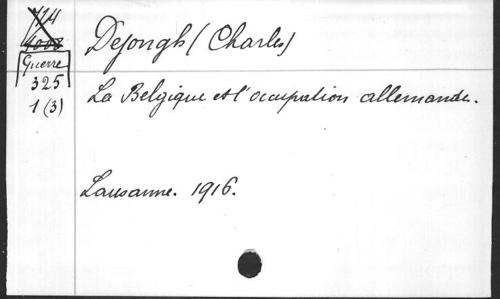 714
4008
Guerre
325
1 (3)
Dejongh (Charles)
La Belgique et l'occupation allemande.
Lausanne. 1916.